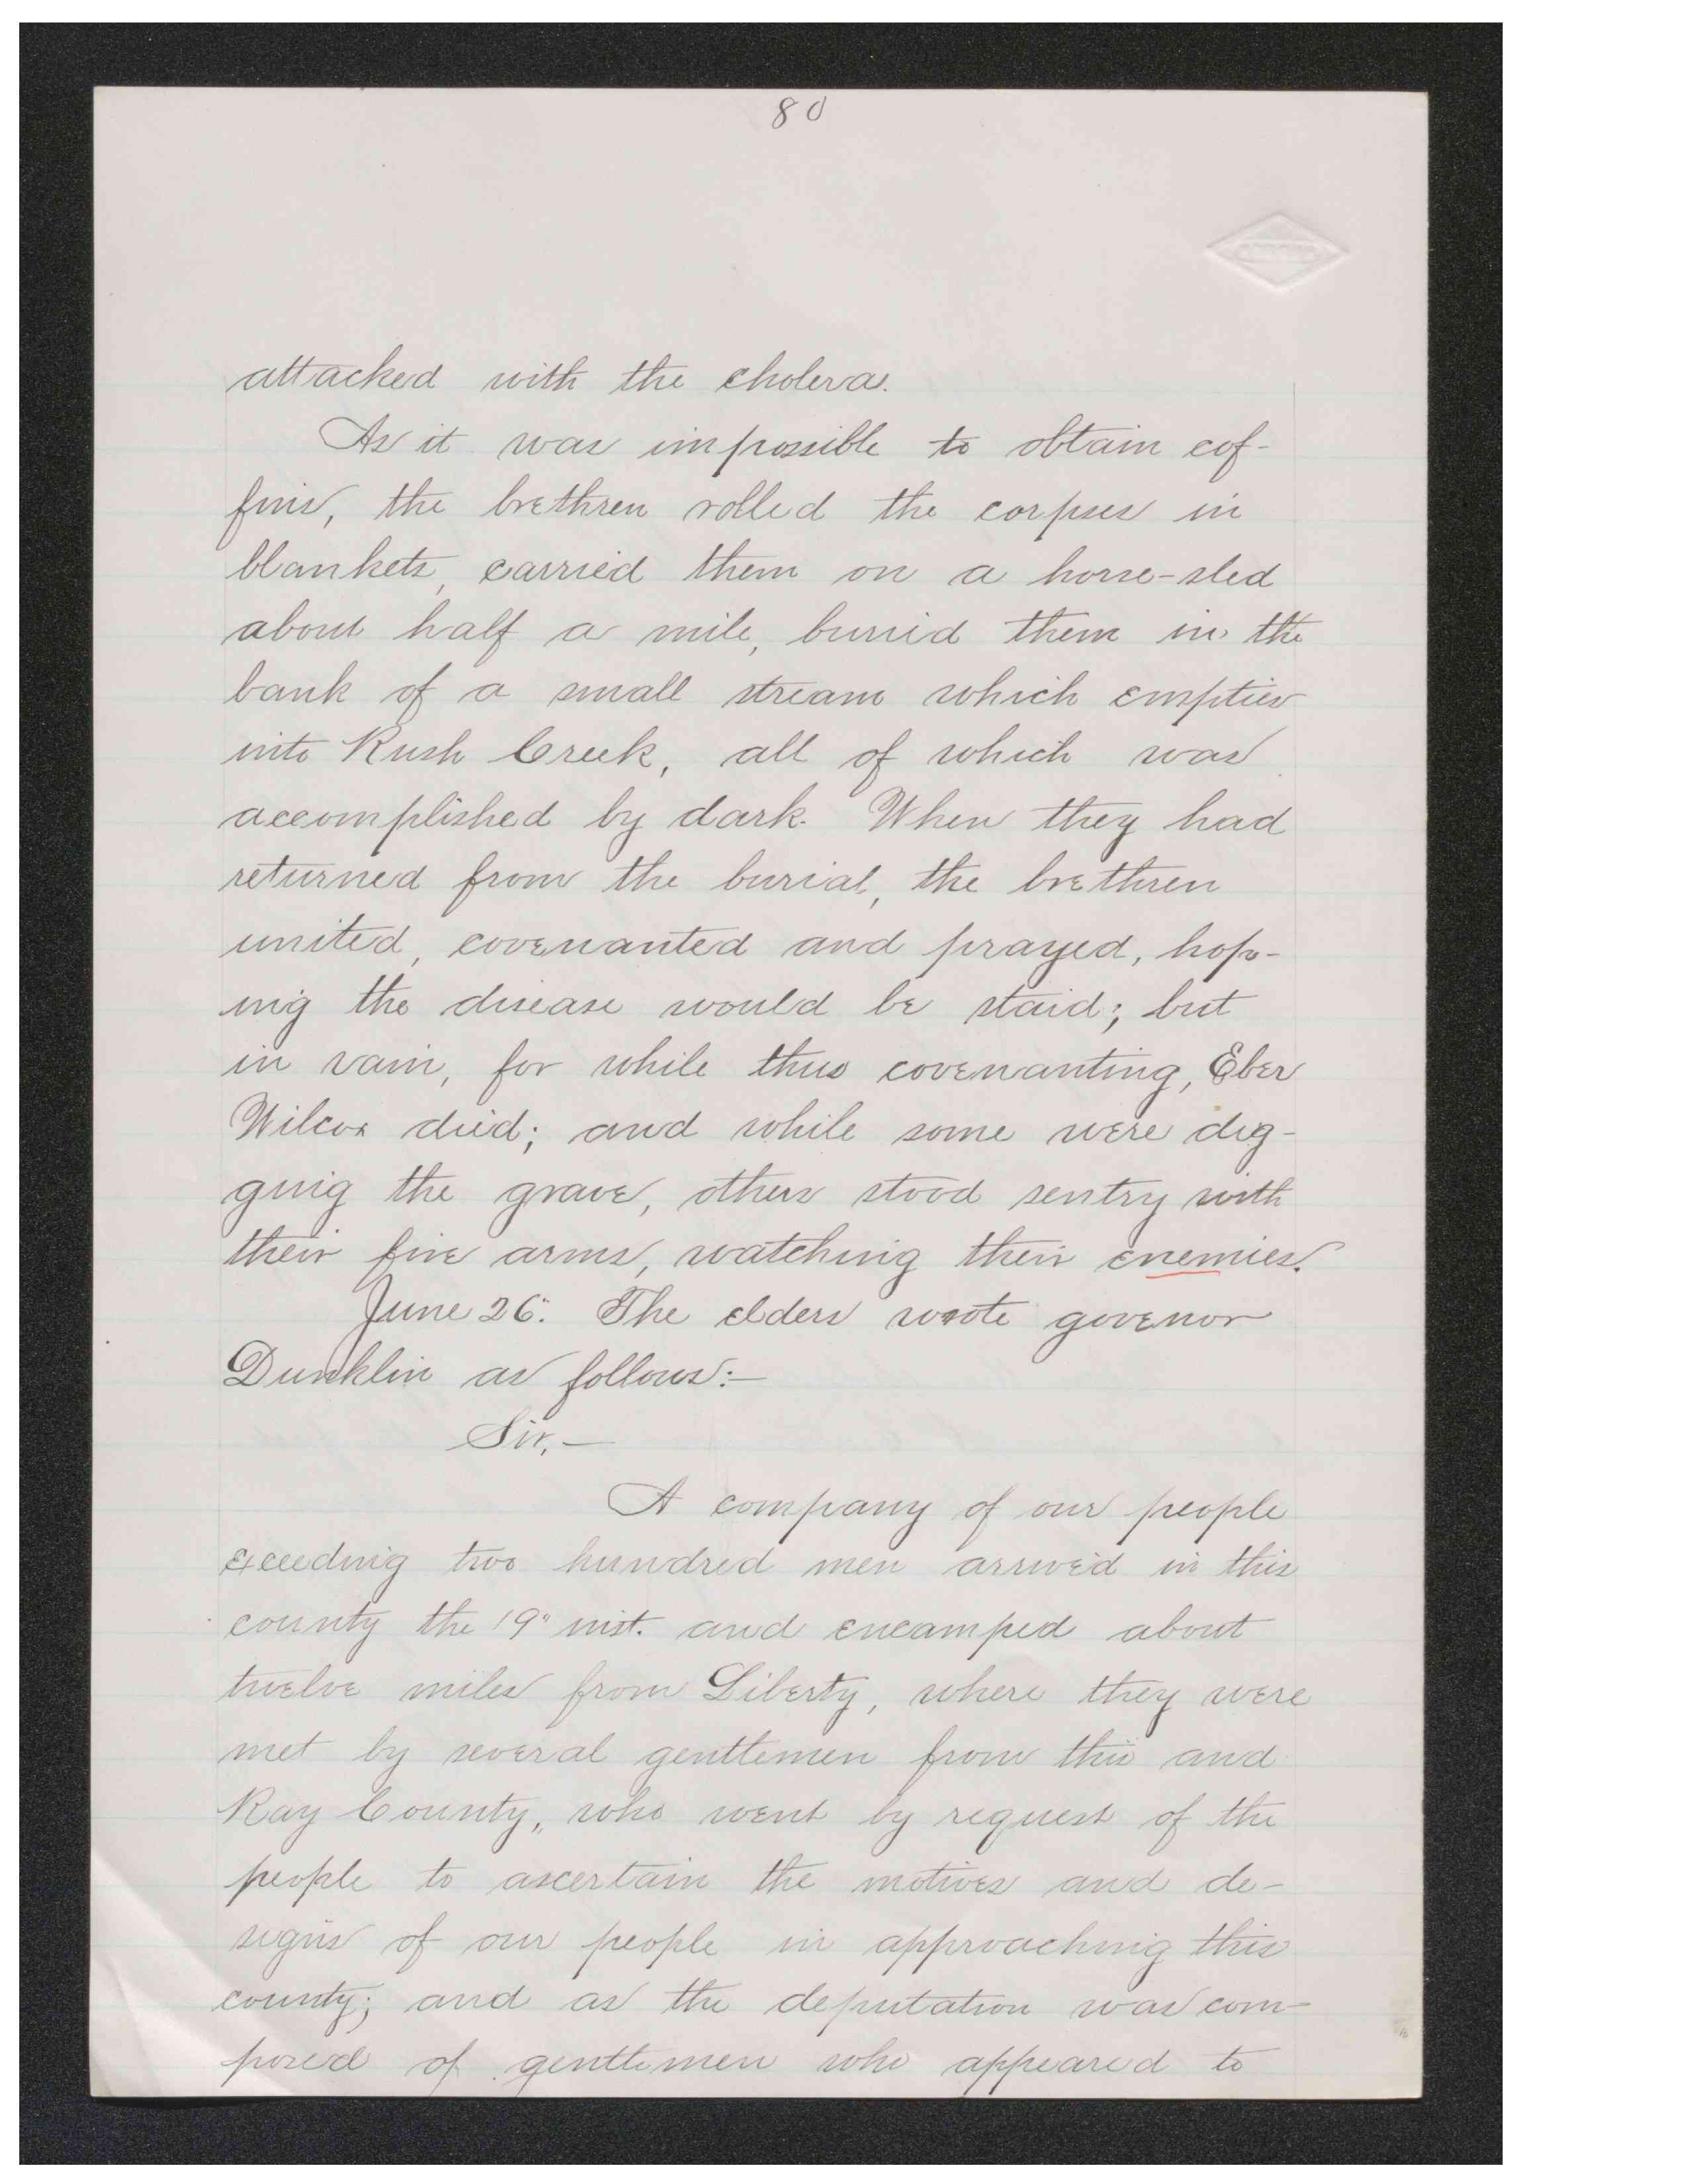 80
attacked with the cholera.
As it was impossible to obtain cof-
fins, the brethren rolled the corpses in
blankets, carried them on a horse-sled
about half a mile, buried them in the
bank of a small stream which empties
into Rush Creek, all of which was
accomplished by dark. When they had
returned from the burial, the brethren
united, covenanted and prayed, hop-
ing the disease would be staid; but
in vain, for while thus covenanting, Eber
Wilcox died; and while some were dig-
ging the grave, others stood sentry with
their fire arms, watching their enemies.
June 26". The elders wrote govenor
Dunklin as follows:—
Sir,—
A company of our people
exceeding two hundred men arrived in this
county the 19" inst. and encamped about
twelve miles from Liberty, where they were
met by several gentlemen from this and
Ray County, who went by request of the
people to ascertain the motives and de-
signs of our people in approaching this
county; and as the deputation was com-
posed of gentlemen who appeared to